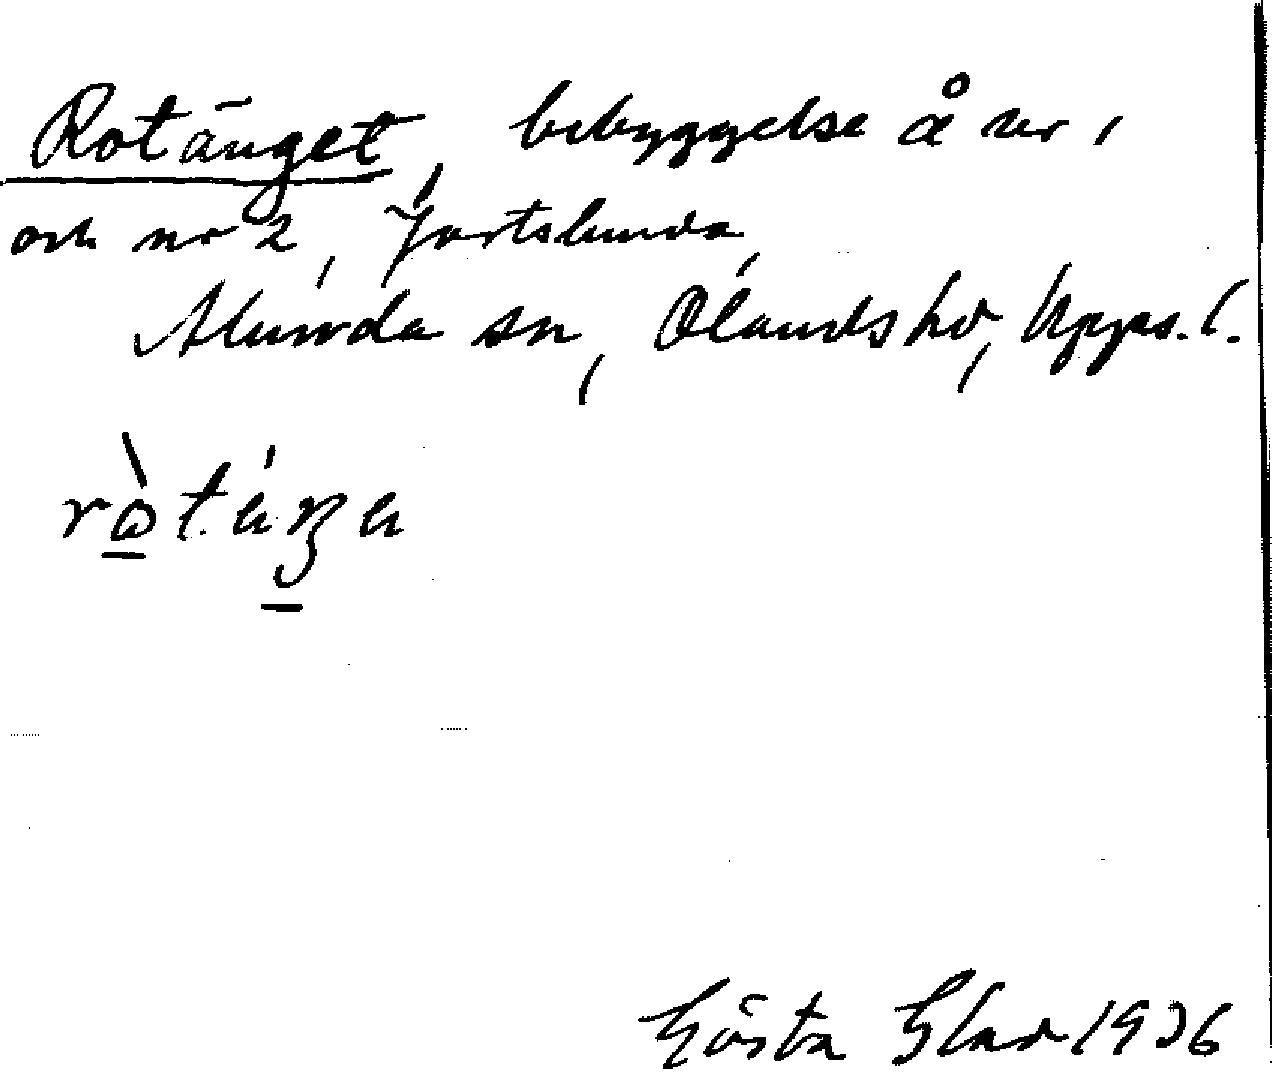 Rotänget, bebyggelse å nr 1
och nr 2, Jortslunda,
Alunda sn, Ölands hd, Upps. l.
rò̱tä́ŋ̱a
Gösta Glad 1936